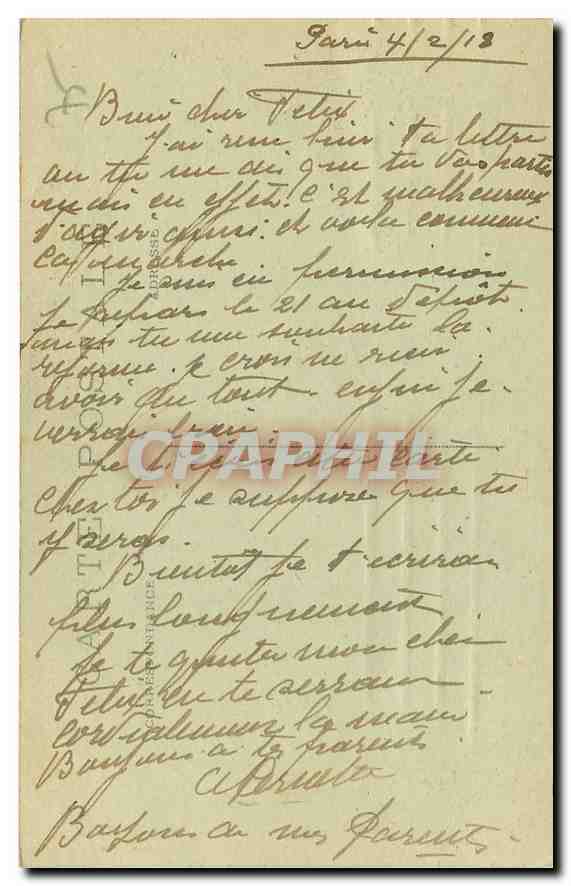 Paris 4/2/18
Bien cher Felix
J'ai reçu hier ta lettre
ou tu me dis que tu vas partir
mais en effet. c'est malheureux
d'agir ainsi. et voila comment
ca marche
Je suis en permission
Je repars le 21 au dépôt.
mais tu me souhaite la
reforme. je crois ne rien
avoir du tout. enfin je
verrai bien.
Je cette carte
chez toi je suppose que tu
y seras.
Bientot je t'ecrirai
plus longuement
Je te quitte mon cher
Felix en te serrant
cordialement la main
Bonjours a tes parents.
Bonjours de mes Parents.
CARTE POSTALE
CORRESPONDANCE
ADRESSE
CPAPHIL